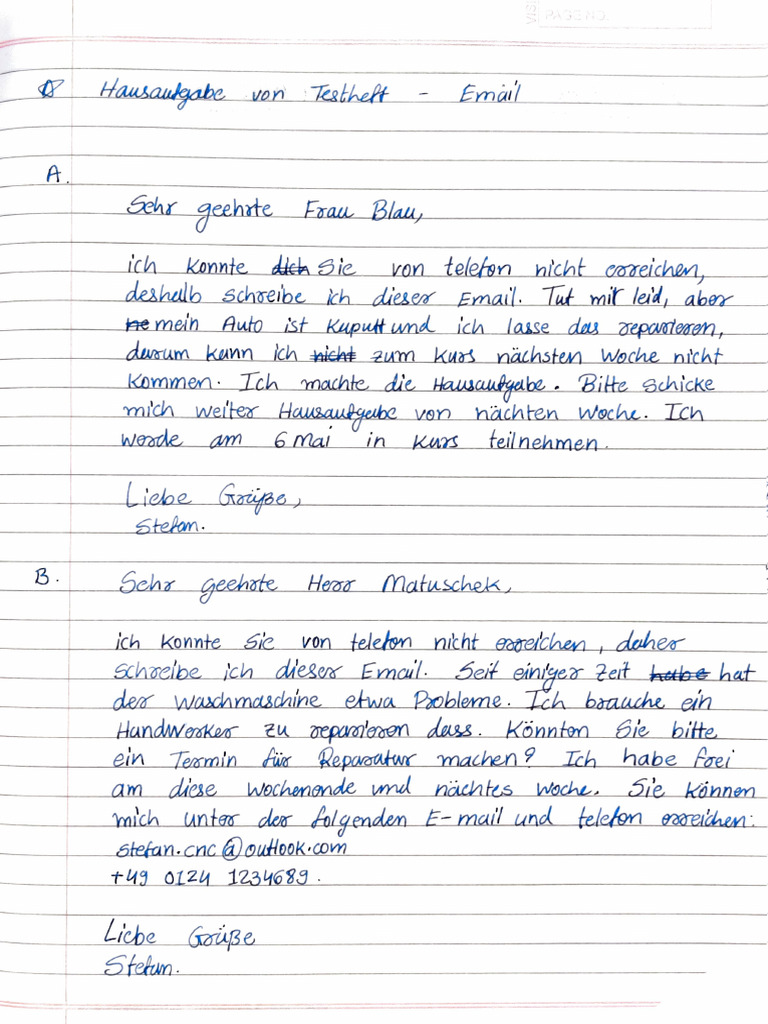 PAGE NO.
Hausaufgabe von Testheft - Email
A.
Sehr geehrte Frau Blau,
ich konnte dich Sie von telefon nicht erreichen,
deshalb schreibe ich dieser Email. Tut mir leid, aber
ne mein Auto ist kaputt und ich lasse das reparieren,
darum kann ich nicht zum Kurs nächsten Woche nicht
kommen. Ich machte die Hausaufgabe. Bitte schicke
mich weiter Hausaufgabe von nächten Woche. Ich
werde am 6 Mai in Kurs teilnehmen.
Liebe Grüße,
Stefan.
B.
Sehr geehrte Herr Matuschek,
ich konnte Sie von telefon nicht erreichen, daher
schreibe ich dieser Email. Seit einiger Zeit habe hat
der Waschmaschine etwa Probleme. Ich brauche ein
Handwerker zu reparieren dass. Könnten Sie bitte
ein Termin für Reparatur machen? Ich habe frei
am diese Wochenende und nächtes Woche. Sie können
mich unter der folgenden E-mail und telefon erreichen:
stefan.cnc@outlook.com
+49 0124 1234689.
Liebe Grüße
Stefan.